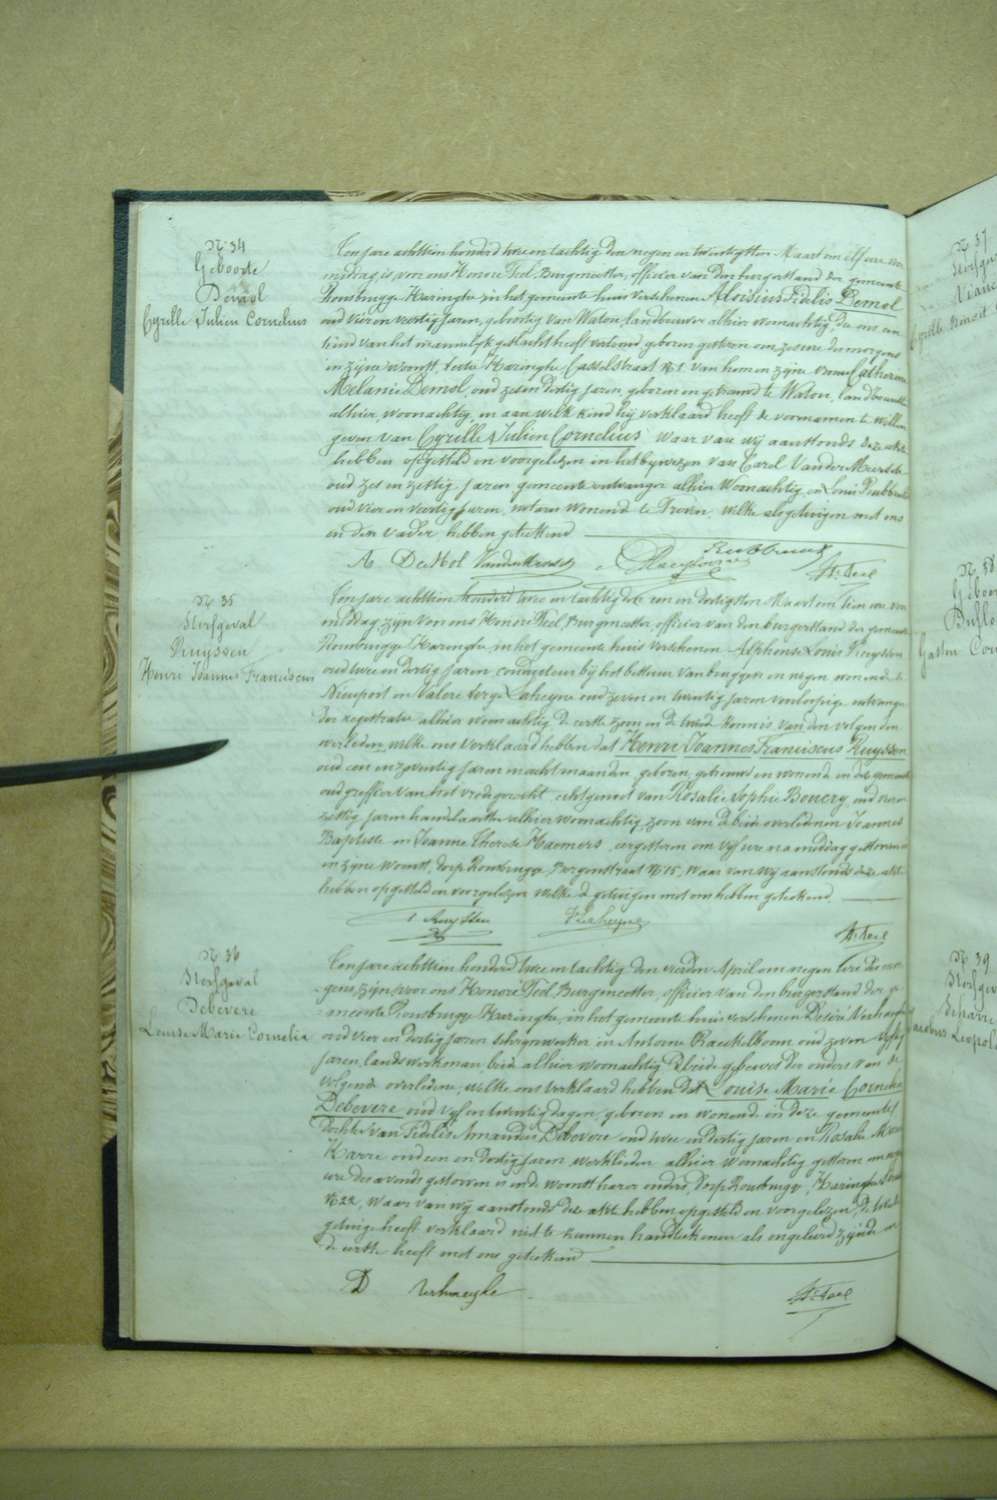 N° 34
Geboorte
Demol
Cyrille Julien Cornelius
Ten jare achttien honderd twee en tachtig den negen en twintigsten Maart om elf ure voor
middag is voor ons Honoré Feel, Burgmeester, officier van den burgerstand der gemeente
Rousbrugge Haringhe in het gemeente huis verschenen Aloisius Fidelis Demol
oud vier en veertig jaren, geboortig van Watou, landbouwer alhier woonachtig, die ons een
kind van het mannelijk geslacht heeft vertoond, geboren gisteren om zes ure des morgens
in zijne woonst, sectie Haringhe, Casselstraat N° 1 van hem en zijne vrouw Catherine
Melanie Demol, oud zes en dertig jaren, geboren en getrouwd te Watou, landbouwster
alhier woonachtig, en aan welk kind hij verklaard heeft de voornamen te willen
geven van Cyrille Julien Cornelius waar van wij aanstonds deze akte
hebben opgesteld en voorgelezen in het bijwezen van Carel Vander Meersch
oud zes en zestig jaren gemeente ontvanger alhier Woonachtig, en Louis
oud vier en veertig jaren, notaris wonende te Proven, welke als getuigen met ons
en den vader hebben geteekend
A. DeMol Vandermeersch H. Feel
N° 35
Sterfgeval
Ruyssen
Henri Joannes Franciscus
Ten jare achttien honderd twee en tachtig den een en dertigsten Maart om tien ure voor
middag zijn voor ons Honoré Feel, Burgmeester, officier van den burgerstand der gemeente
Rousbrugge Haringhe in het gemeente huis verschenen Alphonse Louis Ruyssen
oud twee en dertig jaren conducteur bij het bestuur van bruggen en wegen wonende te
Nieuport en Valere Serge Laheyne oud zeven en twintig jaren voorloopige ontvanger
der registratie alhier woonachtig, de eerste zoon en de tweede kennis van den volgenden
overleden, welke ons verklaard hebben dat Henri Joannes Franciscus Ruyssen
oud een en zeventig jaren en acht maanden, geboren, getrouwd en wonende in deze gemeente
oud greffier van het vredegerecht, echtgenoot van Rosalie Sophie Boucry, oud
zestig jaren handelaarster alhier woonachtig, zoon van de beide overledenen Joannes
Baptiste en Joanna Therese Haemers, eergisteren om vijf ure na middag gestorven is
in zijne woonst, dorp Rousbrugge, Bergenstraat N° 15, waar van wij aanstonds deze akte
hebben opgesteld en voorgelezen welke de getuigen met ons hebben geteekend.
A. Ruyssen V. Laheyne H. Feel
N° 36
Sterfgeval
Debevere
Louise Marie Cornelia
Ten jare achttien honderd twee en tachtig den vierden April om negen ure des mor
gens zijn voor ons Honoré Feel, Burgmeester, officier van den burgerstand der ge
meente Rousbrugge Haringhe, in het gemeente huis verschenen Désiré Verhaeghe
oud vier en dertig jaren schrijnwerker en Antoine Raeckelboom oud zeven
jaren, landswerkman, beide alhier woonachtig, beide gebueren der ouders van de
volgende overledene, welke ons verklaard hebben dat Louise Marie Cornelia
Debevere oud vijf en twintig dagen, geboren en wonende in deze gemeente
dochter van Fidelis Amandus Debevere oud twee en dertig jaren en Rosalie
Harre oud een en dertig jaren werklieden alhier woonachtig gisteren om
ure des avonds gestorven is in de woonst harer ouders, dorp Rousbrugge, Haringhe straat
N° 22, waar van wij aanstonds deze akte hebben opgesteld en voorgelezen, de tweede
getuige heeft verklaard niet te kunnen handteekenen als ongeleerd zijnde en
de eerste heeft met ons geteekend
D Verhaeghe H. Feel
N° 37
N° 38
N° 39